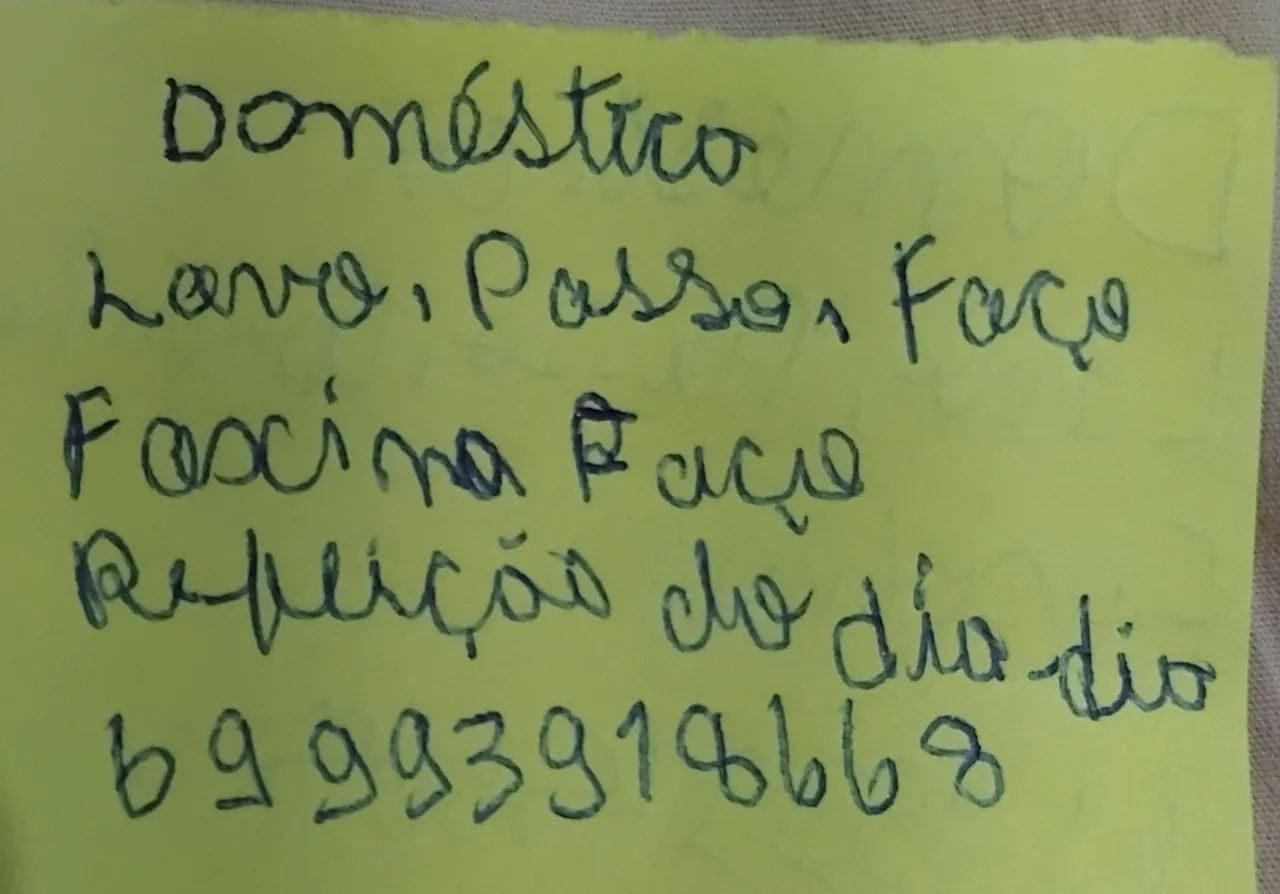 Doméstico
Lavo, Passo, Faço
Faxina Faço
Refeição do dia-dia
69993918668